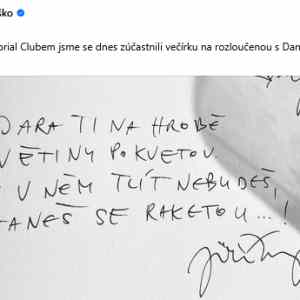 ško
orial Clubem jsme se dnes zúčastnili večírku na rozloučenou s Dan
DARA TI NA HROBĚ
VĚTINY POKVETOU
V NĚM TLÍT NEBUDEŠ,
TANEŠ SE RAKETOU...!